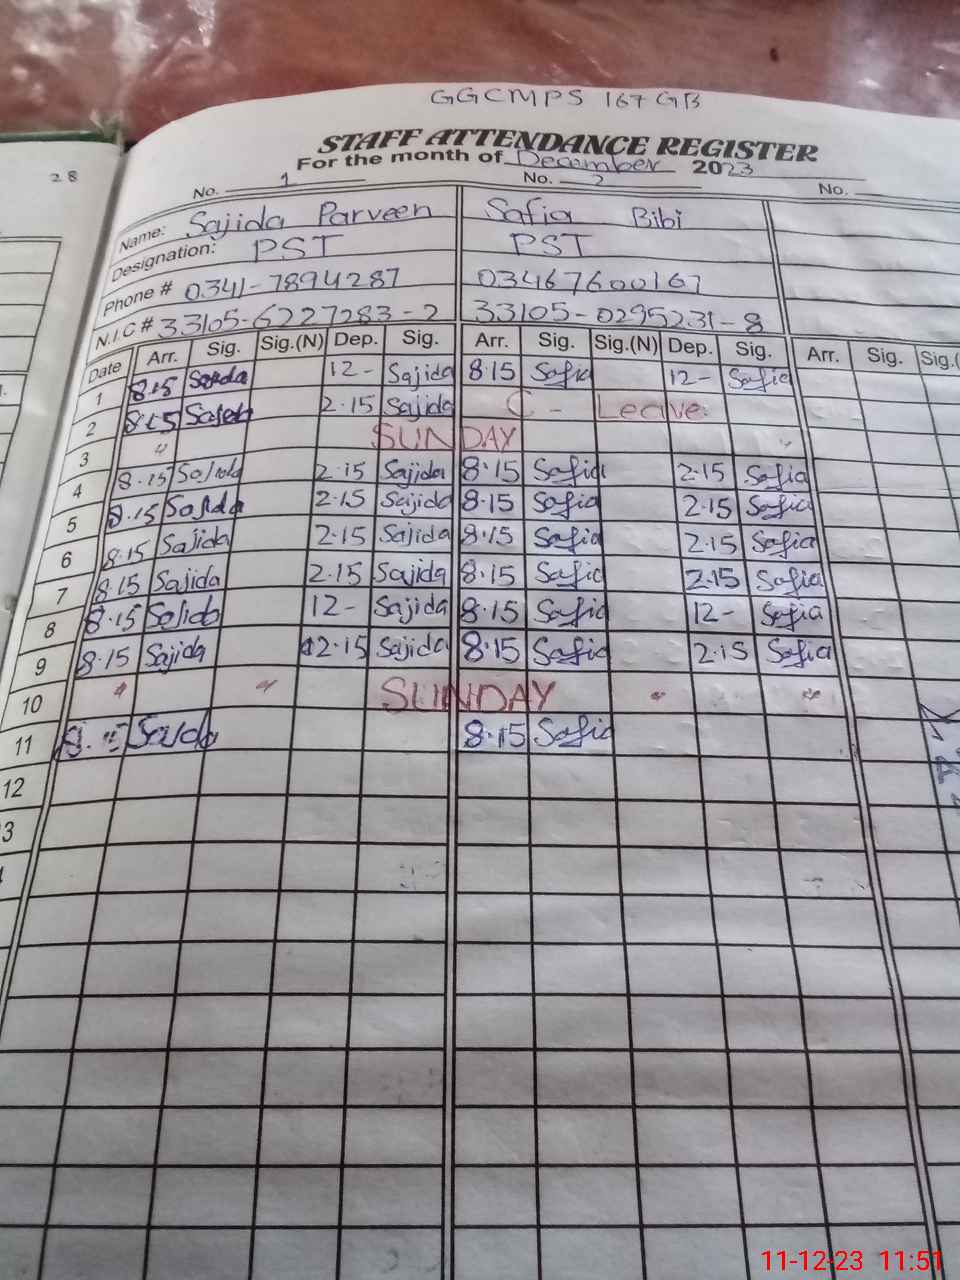 GGCMPS 167 GB
STAFF ATTENDANCE REGISTER
For the month of December 2023
28
No. 1 No. 2 No.
Name: Sajida Parveen Safia Bibi
Designation: PST PST
Phone # 0341-7894287 03467600167
N.I.C # 33105-6227283-2 33105-0295231-8
Date Arr. Sig. Sig.(N) Dep. Sig. Arr. Sig. Sig.(N) Dep. Sig. Arr. Sig. Sig.(
1 8.15 Sajida 12- Sajida 8.15 Safia 12- Safia
2 8.15 Sajida 2.15 Sajida C - Leave.
3 " SUNDAY "
4 8.15 Sajida 2.15 Sajida 8.15 Safia 2.15 Safia
5 8.15 Sajida 2.15 Sajida 8.15 Safia 2.15 Safia
6 8.15 Sajida 2.15 Sajida 8.15 Safia 2.15 Safia
7 8.15 Sajida 2.15 Sajida 8.15 Safia 2.15 Safia
8 8.15 Sajida 12- Sajida 8.15 Safia 12- Safia
9 8.15 Sajida 2.15 Sajida 8.15 Safia 2.15 Safia
10 " " SUNDAY " "
11 8.15 Sajida 8.15 Safia
12
3
11-12-23 11:51